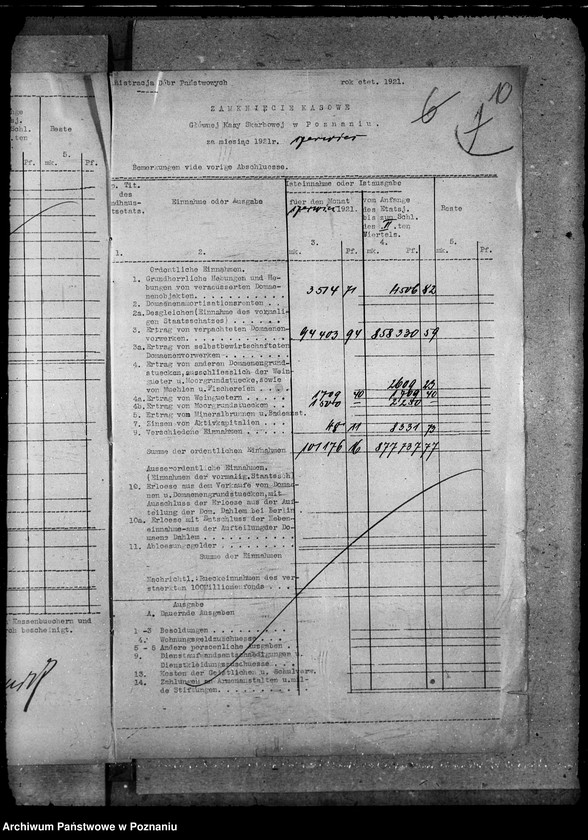 Dóbr Państwowych rok etat. 1921.
6 7 10
ZAMKNIĘCIE KASOWE
Głównej Kasy Skarbowej w Poznaniu.
za miesiąc 1921r. czerwiec
Bemerkungen vide vorige Abschluesse.
Tit.
des
etats.
Einnahme oder Ausgabe
Isteinnahme oder Istausgabe
für den Monat
czerwiec 1921.
vom Anfange
des Etatsj.
bis zum Schl.
des II.ten
Viertels.
Reste
1. 2. 3. 4. 5.
mk. Pf. mk. Pf. mk. Pf.
Ordentliche Einnahmen.
1. Grundherrliche Hebungen und He-
bungen von veraeusserten Domae-
nenobjekten. 3574 71 4506 82
2. Domaenenamortisationsrenten
2a. Desgleichen(Einnahme des vormali-
gen Staatsschatzes)
3. Ertrag von verpachteten Domaenen-
vorwerken. 94403 94 858330 59
3a. Ertrag von selbstbewirtschafteten
Domaenenvorwerken
4. Ertrag von anderen Domaenengrund-
stuecken, ausschliesslich der Wein-
gueter u.Moorgrundstuecke, sowie
von Muehlen u.Fischereien 2609 23
4a. Ertrag von Weinguetern 1709 40 1709 40
4b. Ertrag von Moorgrundstuecken 1500 — 2250 —
5. Ertrag von Mineralbrunnen u.Badeanst.
7. Zinsen von Aktivkapitalien
9. Verschiedene Einnahmen 11 8331 73
Summe der ordentlichen Einnahmen 101176 16 877737 77
Ausserordentliche Einnahmen.
(Einnahmen der vormalig.Staatssch)
10. Erloese aus dem Verkaufe von Domae-
nen u.Domaenengrundstuecken, mit
Ausschluss der Erloese aus der Auf-
teilung der Dom. Dahlem bei Berlin
10a. Erloese mit Botschluss der Neben-
einnahme aus der Aufteilung der Do-
maene Dahlem
11. Abloesungsgelder
Summe der Einnahmen
Nachrichtl.:Rueckeinnahmen des ver-
staerkten 100Millionenfonds
Ausgabe
A. Dauernde Ausgaben
1 -3 Besoldungen
4. Wohnungsgeldzuschuesse
5 - 8 Andere persoenliche Ausgaben
9. Dienstaufwandsentschaedigungen u.
Dienstkleidungszuschuesse
13. Kosten der Geistlichen u. Schulverw.
14. Zahlungen an Armenanstalten u.mil-
de Stiftungen.
Schl.
ten
Reste
5.
Pf. mk. Pf.
Kassenbuechern und
bescheinigt.
Archiwum Państwowe w Poznaniu